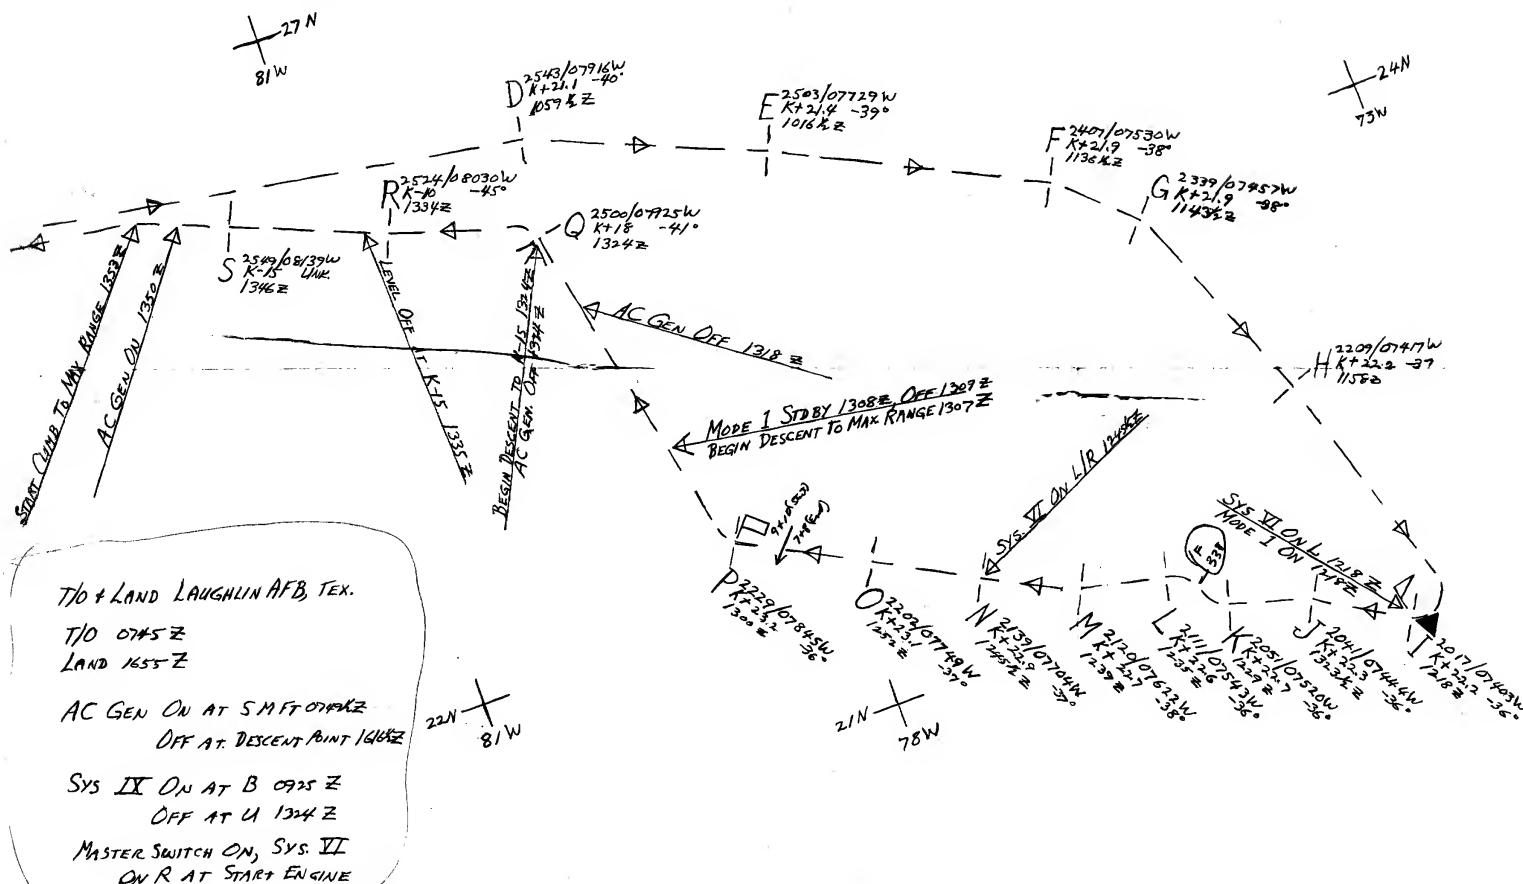 27 N
81W
24N
73W
D 2543/07916W
K+21.1 -40°
1059½ Z
E 2503/07729W
K+21.4 -39°
1016½ Z
F 2407/07530W
K+21.9 -38°
1136½ Z
G 2339/07457W
K+21.9 -38°
1143½ Z
R 2524/08030W
K-10 -45°
1334Z
Q 2500/07925W
K+18 -41°
1324Z
S 2549/08139W
K-15 UNK.
1346Z
H 2209/07417W
K+22.2 -37
1158Z
START CLIMB TO MAX RANGE 1353Z
AC GEN ON 1350 Z
LEVEL OFF AT K-15 1335Z
BEGIN DESCENT TO K-15 1324Z
AC GEN. OFF 1324Z
AC GEN OFF 1318 Z
MODE I STDBY 1308Z, OFF 1309Z
BEGIN DESCENT TO MAX RANGE 1307Z
SYS. VI ON L/R 1245½Z
SYS VI ON L 1218 Z
MODE I ON 1218Z
338
P 2229/07845W
K+23.2
1300 Z -36°
O 2202/07749W
K+23.1
1252 Z -37°
N 2139/07704W
K+22.9
1245½ Z -37°
M 2120/07622W
K+22.7
1239 Z -38°
L 2111/07543W
K+22.6
1235 Z -36°
K 2051/07520W
K+22.7
1229 Z -36°
J 2041/07444W
K+22.3
1323½ Z -36°
I 2017/07403W
K+22.2
1218 Z -36°
22N
81W
21N
78W
T/O & LAND LAUGHLIN AFB, TEX.
T/O 0745 Z
LAND 1655 Z
AC GEN ON AT 5 M FT 0749½Z
OFF AT DESCENT POINT 1616½Z
SYS IX ON AT B 0925 Z
OFF AT U 1324 Z
MASTER SWITCH ON, SYS. VI
ON R AT START ENGINE